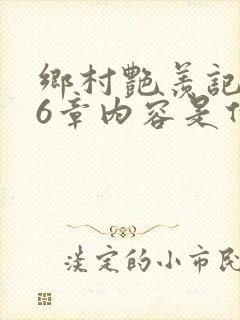 鄉村艷羨記
6章內容是
淡定的小市民